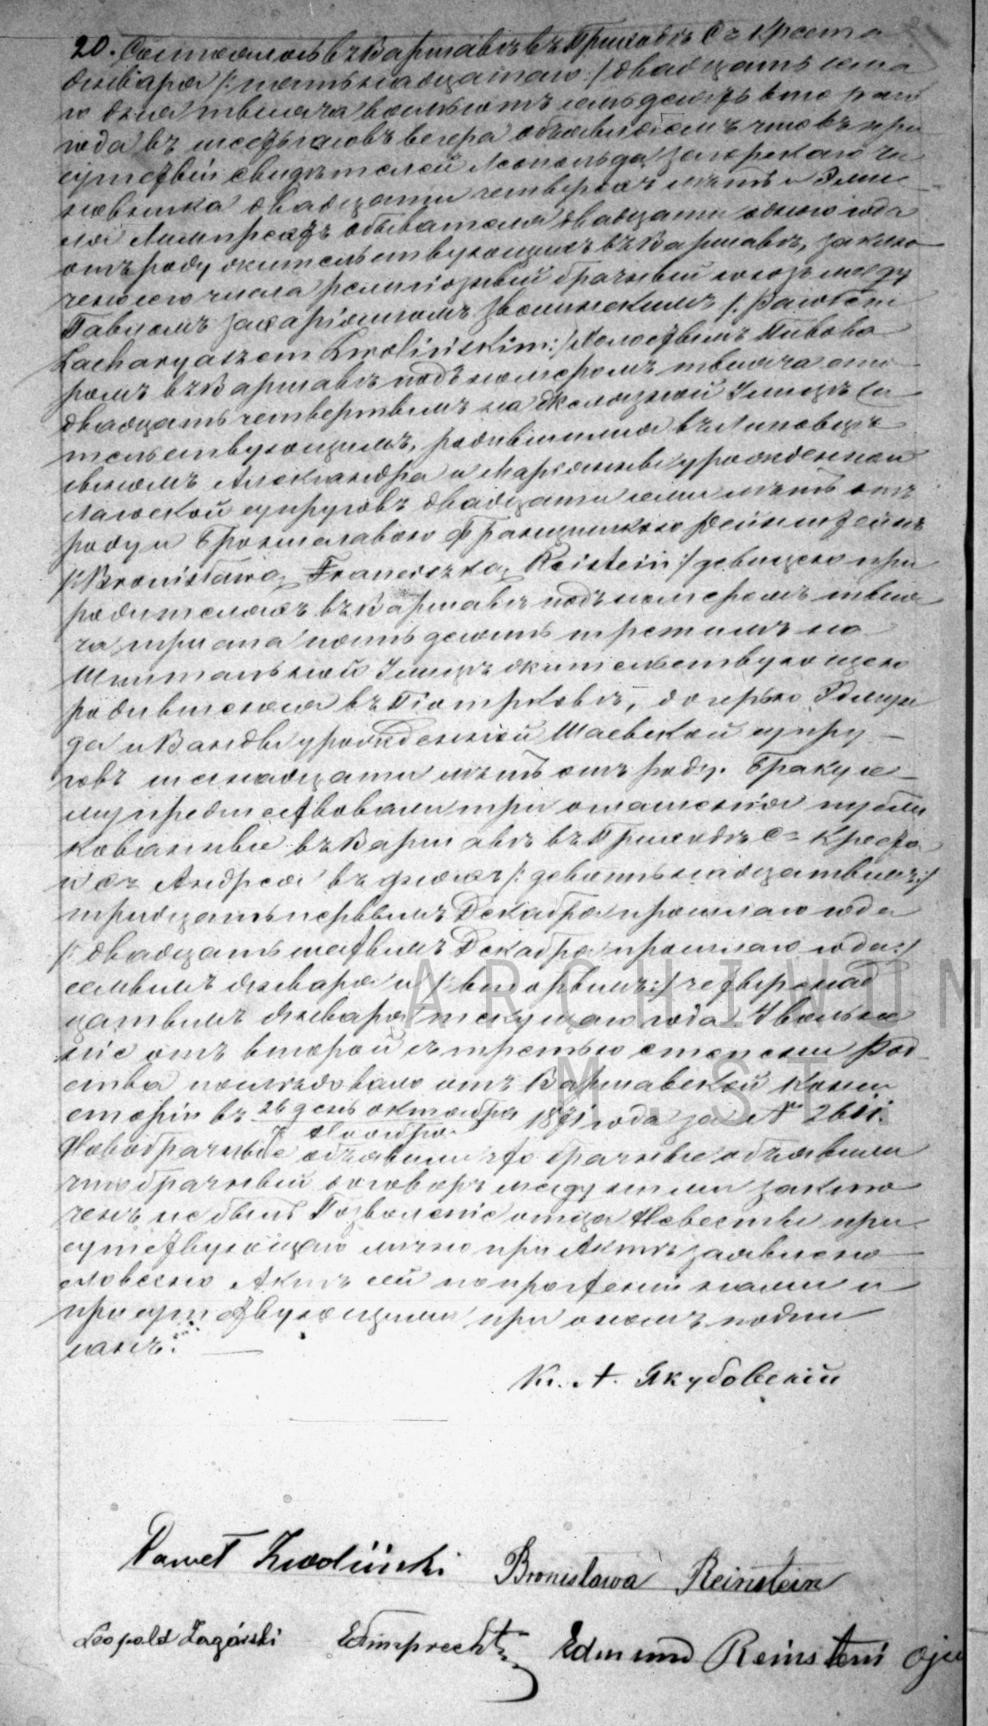 20. Состоялось въ Варшавѣ въ Приходѣ Св Креста
Января /:пятьнадцатаго:/ двадцать седьма
го дня тысяча восемьсотъ семьдесятъ втораго
года въ шесть часовъ вечера объявляемъ что въ при
сутствіи свидѣтелей Леопольда Загорскаго чи
новника двадцати четырехъ лѣтъ и Эми
лія Лимпрехтъ обывателя двадцати одного года
отъ роду жительствующихъ въ Варшавѣ, заклю
чено сего числа религіозный брачный союзъ между
Павломъ Захаріашомъ Зволинскимъ /:Pawłem
Zacharyaszem Zwolińskim:/ Холостымъ Пивова
ромъ въ Варшавѣ подъ номеромъ тысяча сто
двадцать четвертымъ на Желязной Улицѣ жи
тельствующимъ, родившимся въ Липовцѣ
сыномъ Александра и Маріянны урожденной
супруговъ двадцати семи лѣтъ отъ
роду и Брониславою Францишкою Рейнштейнъ
/:Bronisława Franciszka Reistein:/ девицею при
родителяхъ въ Варшавѣ подъ номеромъ тыся
ча триста пятьдесятъ третимъ на
Шпитальной Улицѣ жительствующею
родившеюся въ Піотрковѣ, дочерью Эдмун
да и Ванды урожденной Шаевской супру
говъ шеснадцати лѣтъ отъ роду. Браку се
му предшествовали три оглашенія публи
кованные въ Варшавѣ въ Приходѣ Св Креста
и Св Андрея въ дняхъ /:девятьнадцатымъ:/
тридцать первымъ Декабря прошлаго года
/:двадцать шестымъ Декабря прошлаго года:/
седьмымъ Января и /:вторымъ:/ четырнад
цатымъ Января текущаго года Увольне
ніе отъ второй съ третью степени Род
ства послѣдовало отъ Варшавской Конси
сторіи въ 26 день октября 1871 года за № 2611.
7 Ноября
Новобрачные объявили что брачные объявили
что брачный договоръ между ними заклю
ченъ не былъ Позволеніе отца Невесты при
сутствующаго лично при Актѣ заявлено
словесно Актъ сей по прочтеніи нами и
присутствующими при ономъ подпи
санъ.
Кс. А. Якубовскій
Paweł Zwoliński Bronisława Reinstein
Leopold Zagórski Edmund Reinstein Ojci
ARCHIWUM
M.ST.